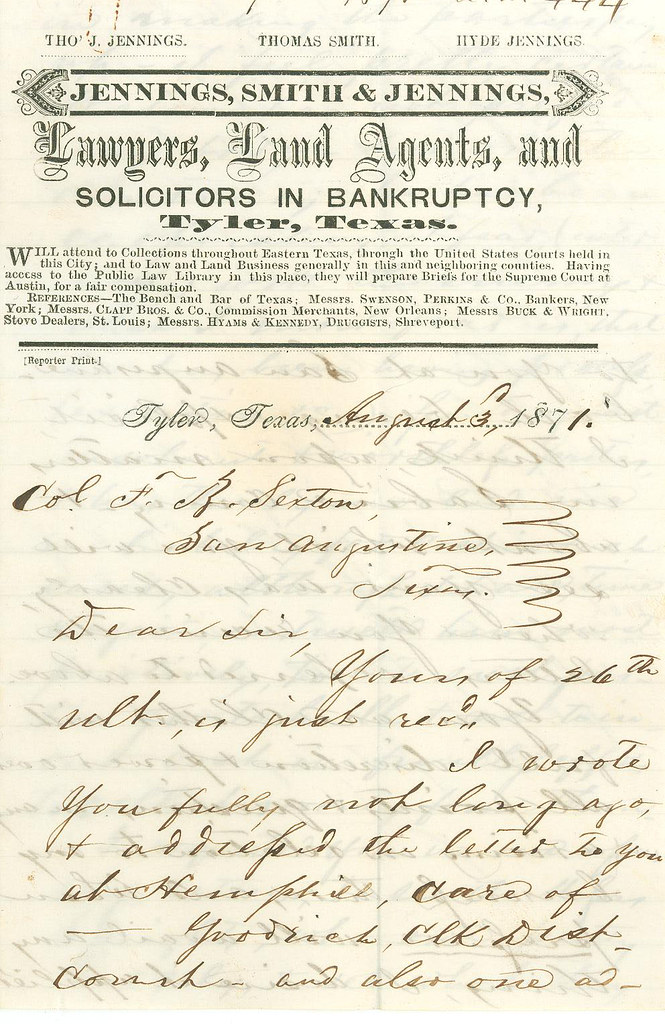 THO' J. JENNINGS. THOMAS SMITH. HYDE JENNINGS.
JENNINGS, SMITH & JENNINGS,
Lawyers, Land Agents, and
SOLICITORS IN BANKRUPTCY,
Tyler, Texas.
WILL attend to Collections throughout Eastern Texas, through the United States Courts held in
this City; and to Law and Land Business generally in this and neighboring counties. Having
access to the Public Law Library in this place, they will prepare Briefs for the Supreme Court at
Austin, for a fair compensation.
REFERENCES—The Bench and Bar of Texas; Messrs. SWENSON, PERKINS & CO., Bankers, New
York; Messrs. CLAPP BROS. & CO., Commission Merchants, New Orleans; Messrs BUCK & WRIGHT,
Stove Dealers, St. Louis; Messrs. HYAMS & KENNEDY, DRUGGISTS, Shreveport.
[Reporter Print.]
Tyler, Texas, August 3, 1871.
Col. F. B. Sexton,
San Augustine,
Texas.
Dear Sir,
Yours of 26th
ult., is just recd.
I wrote
you fully not long ago,
& addressed the letter to you
at Hemphill, care of
— Goodrich, Clk Dist
Court – and also one ad-